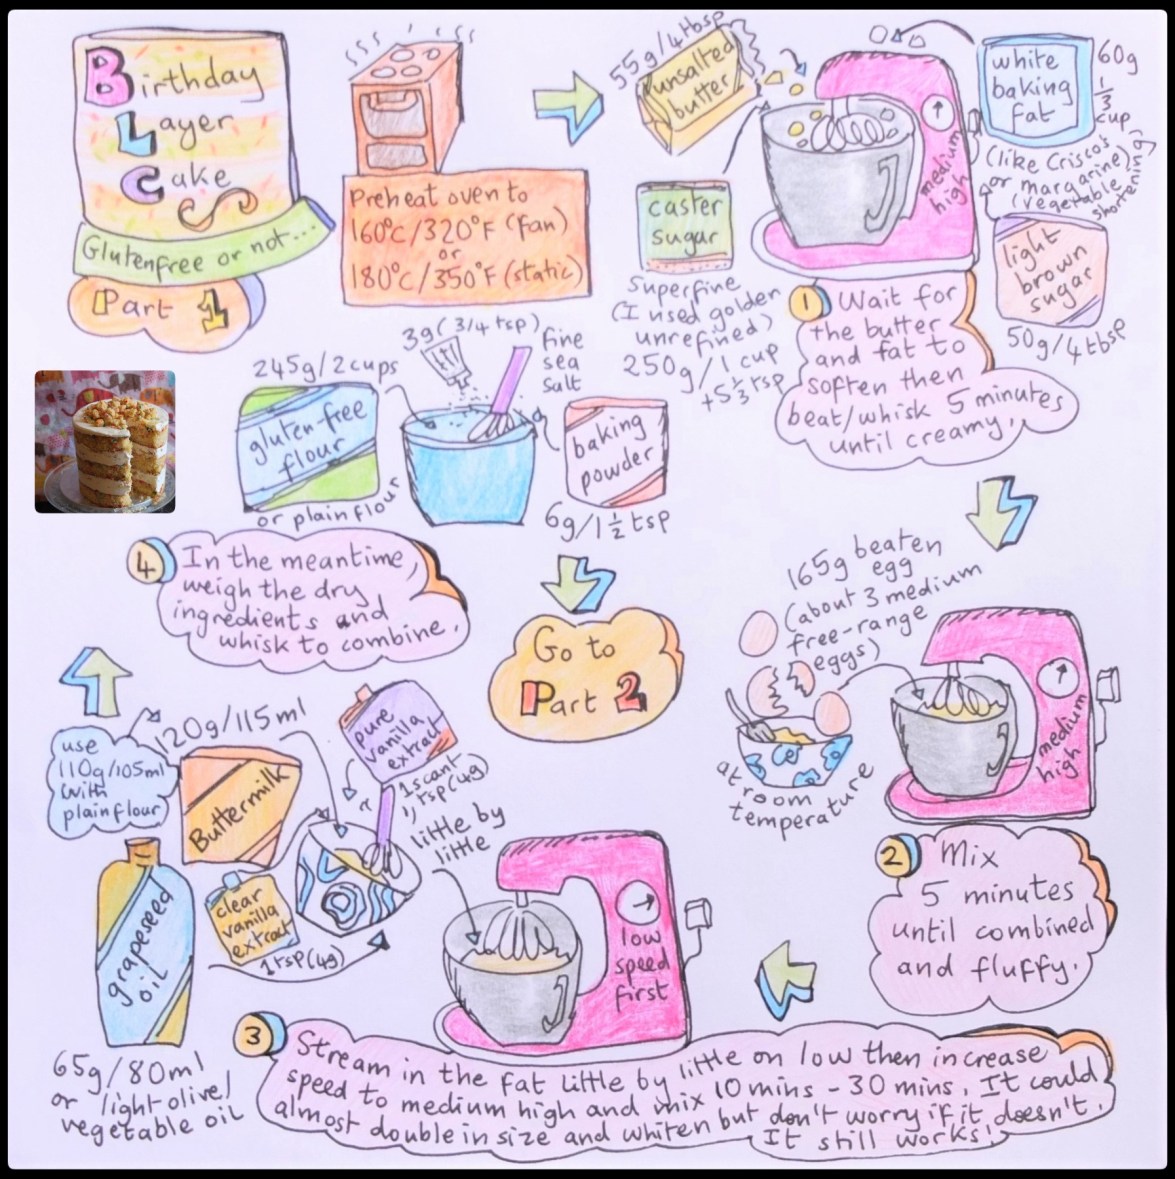 Birthday
Layer
Cake
Glutenfree or not...
Part 1
Preheat oven to
160°C/320°F (fan)
or
180°C/350°F (static)
55g/4tbsp
unsalted
butter
white
baking
fat
60g
1/3
cup
(like Crisco's
or margarine)
(vegetable
shortening)
caster
sugar
superfine
(I used golden
unrefined)
250g/1 cup
+5 1/3 tsp
medium
high
light
brown
sugar
50g/4tbsp
1 Wait for
the butter
and fat to
soften then
beat/whisk 5 minutes
until creamy.
165g beaten
egg
(about 3 medium
free-range
eggs)
at room
temperature
medium
high
2 Mix
5 minutes
until combined
and fluffy.
use
110g/105ml
with
plain flour
120g/115ml
Buttermilk
pure
vanilla
extract
1 scant
tsp (4g)
clear
vanilla
extract
1 tsp (4g)
grapeseed
oil
65g/80ml
or light olive/
vegetable oil
little by
little
low
speed
first
3 Stream in the fat little by little on low then increase
speed to medium high and mix 10 mins - 30 mins. It could
almost double in size and whiten but don't worry if it doesn't.
It still works!
245g/2cups
gluten-free
flour
or plain flour
3g (3/4 tsp)
fine
sea
salt
baking
powder
6g/1 1/2 tsp
4 In the meantime,
weigh the dry
ingredients and
whisk to combine.
Go to
Part 2